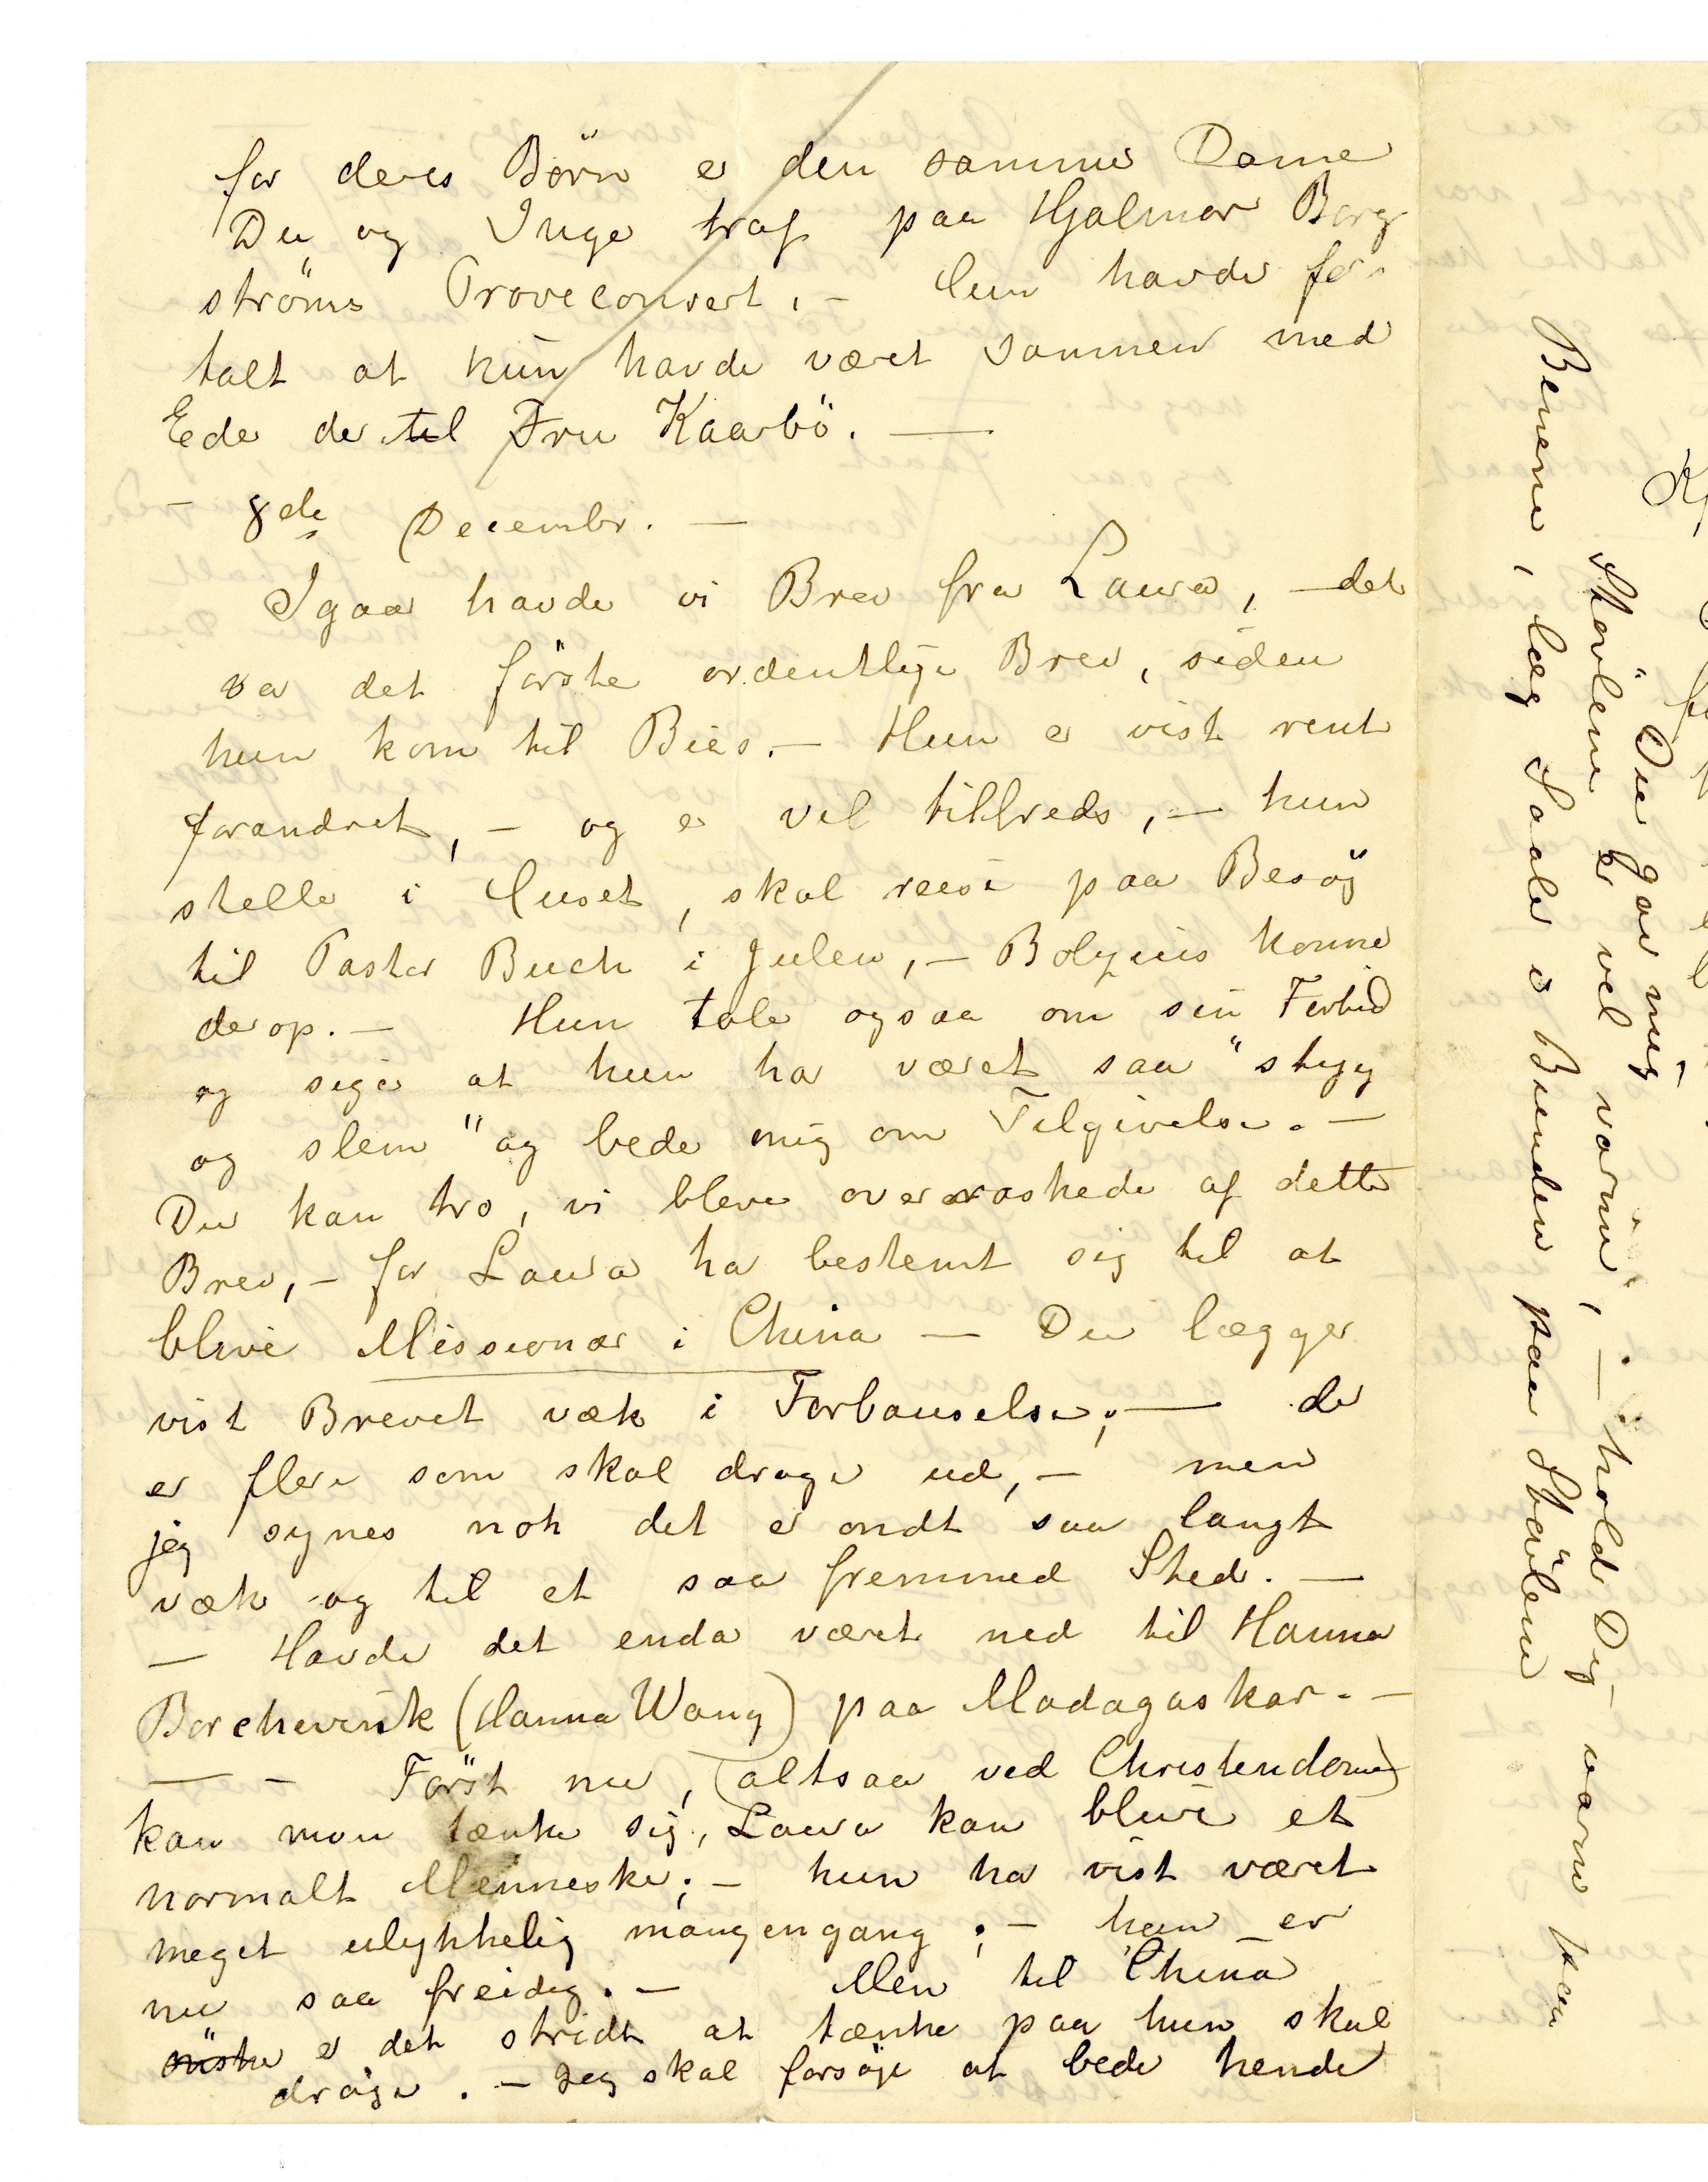 for deres Börn er den samme Dame
Du og Inge traf paa Hjalmar Borg
ströms Pröveconsert. – Hun havde for-
talt at hun havde været sammen med
Ede der til Fru Kaarbö. —
– 8de Decembr. –
Igaar havde vi Brev fra Laura, – det
var det förste ordentlige Brev, siden
hun kom til Bies. – Hun er vist rent
forandret, – og er vel tilfreds, – hun
steller i Huset, skal reise paa Besög
til Pastor Buch i Julen, –
derop. – Hun taler ogsaa om sin Fortid
og siger at hun har været saa "stygg
og slem" og beder mig om Tilgivelse. –
Du kan tro, vi bleve overraskede af dette
Brev, – for Laura har bestemt sig til at
blive Missionær i China – Du lægger
vist Brevet væk i Forbauselse; — der
er flere som skal drage ud, – men
jeg synes nok det er ondt saa langt
væk og til et saa fremmed Sted. –
– Havde det enda været ned til Hanna
Borchevink (Hanna Wang) paa Madagaskar. –
— – Först nu, (altsaa ved Christendomen)
kan man tænke sig, Laura kan blive et
normalt Menneske; – hun har vist været
meget ulykkelig mangengang; – hun er
nu saa freidig. – Men til China
er det stridt at tænke paa hun skal
drage. – Jeg skal forsöge at bede hende
Du gav mig
Stövlene er vel varme, – hold Dig varm paa
Benene, læg Saaler i Bunden paa Stövlene